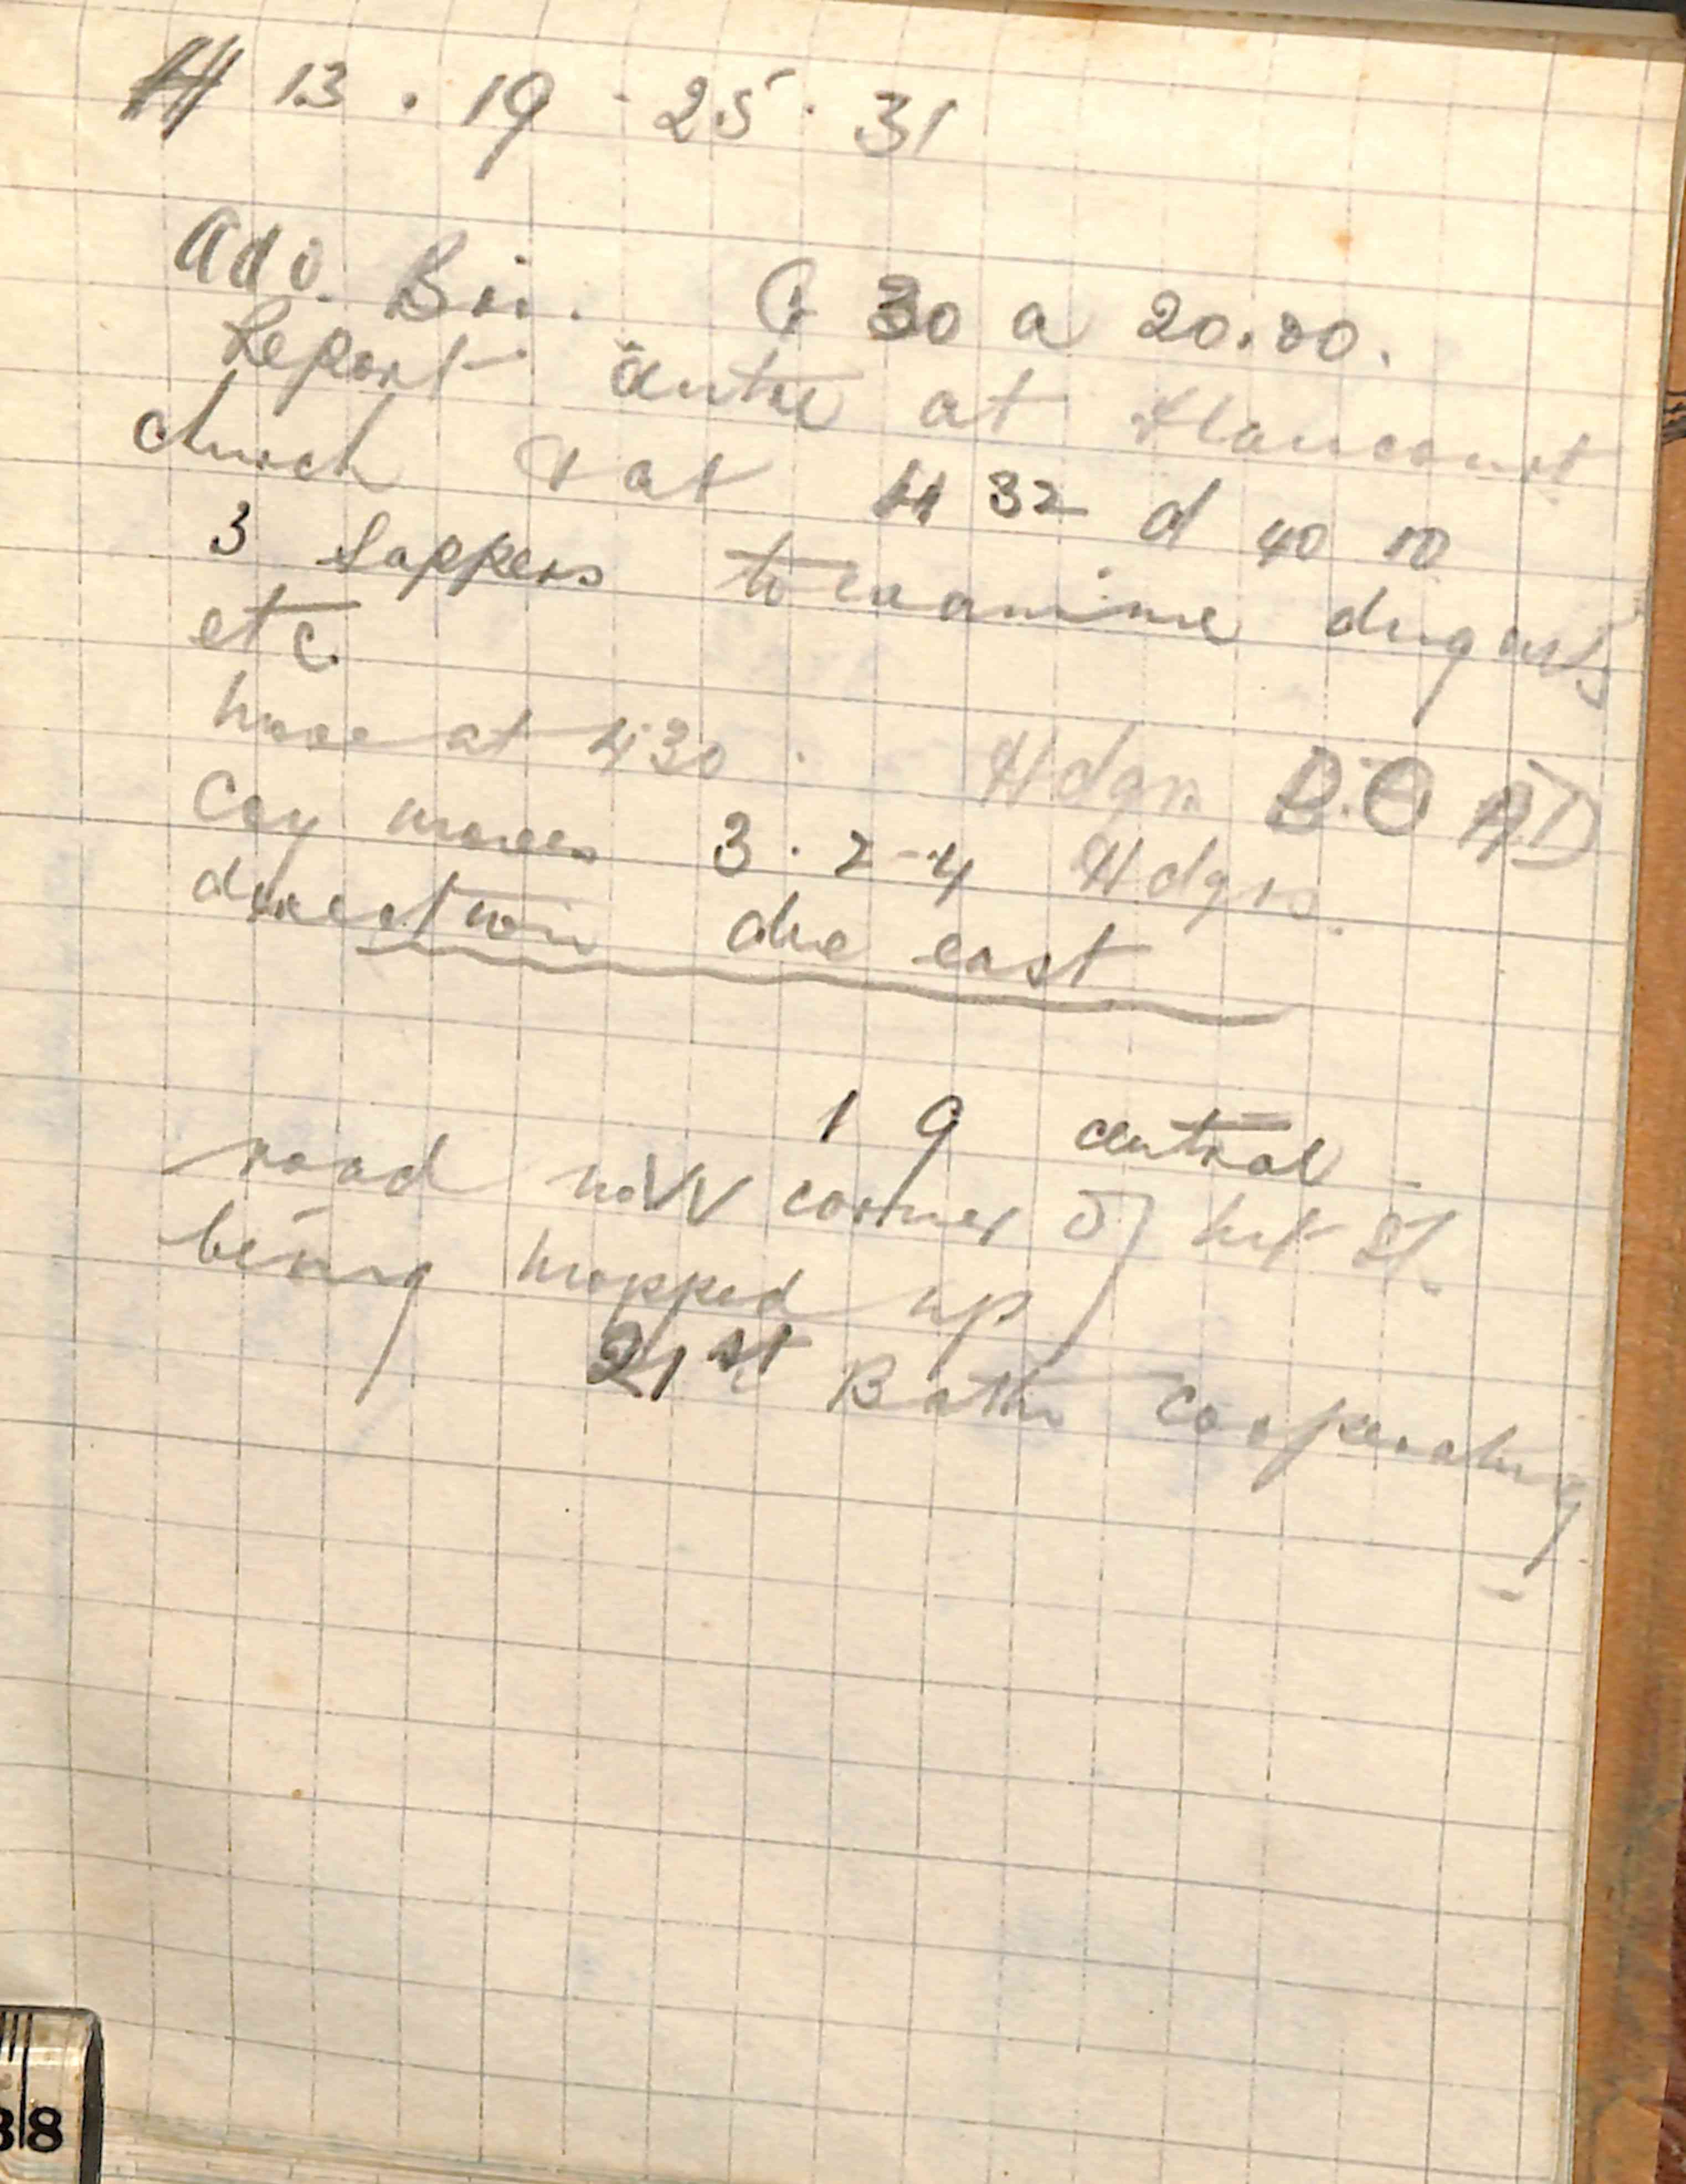 H 13 . 19 . 25 . 31
Adv. Bri. G 30 a 20.00.
Report centre at Hancourt
church & at H 32 d 40 10
3 Sappers to examine dugouts
etc.
move at 430 . Hdqrs
Coy moves 3 . 2 - 4 Hdqrs.
direction due east
19 central -
road NW corner of
being mopped up
21st Battn cooperating
38